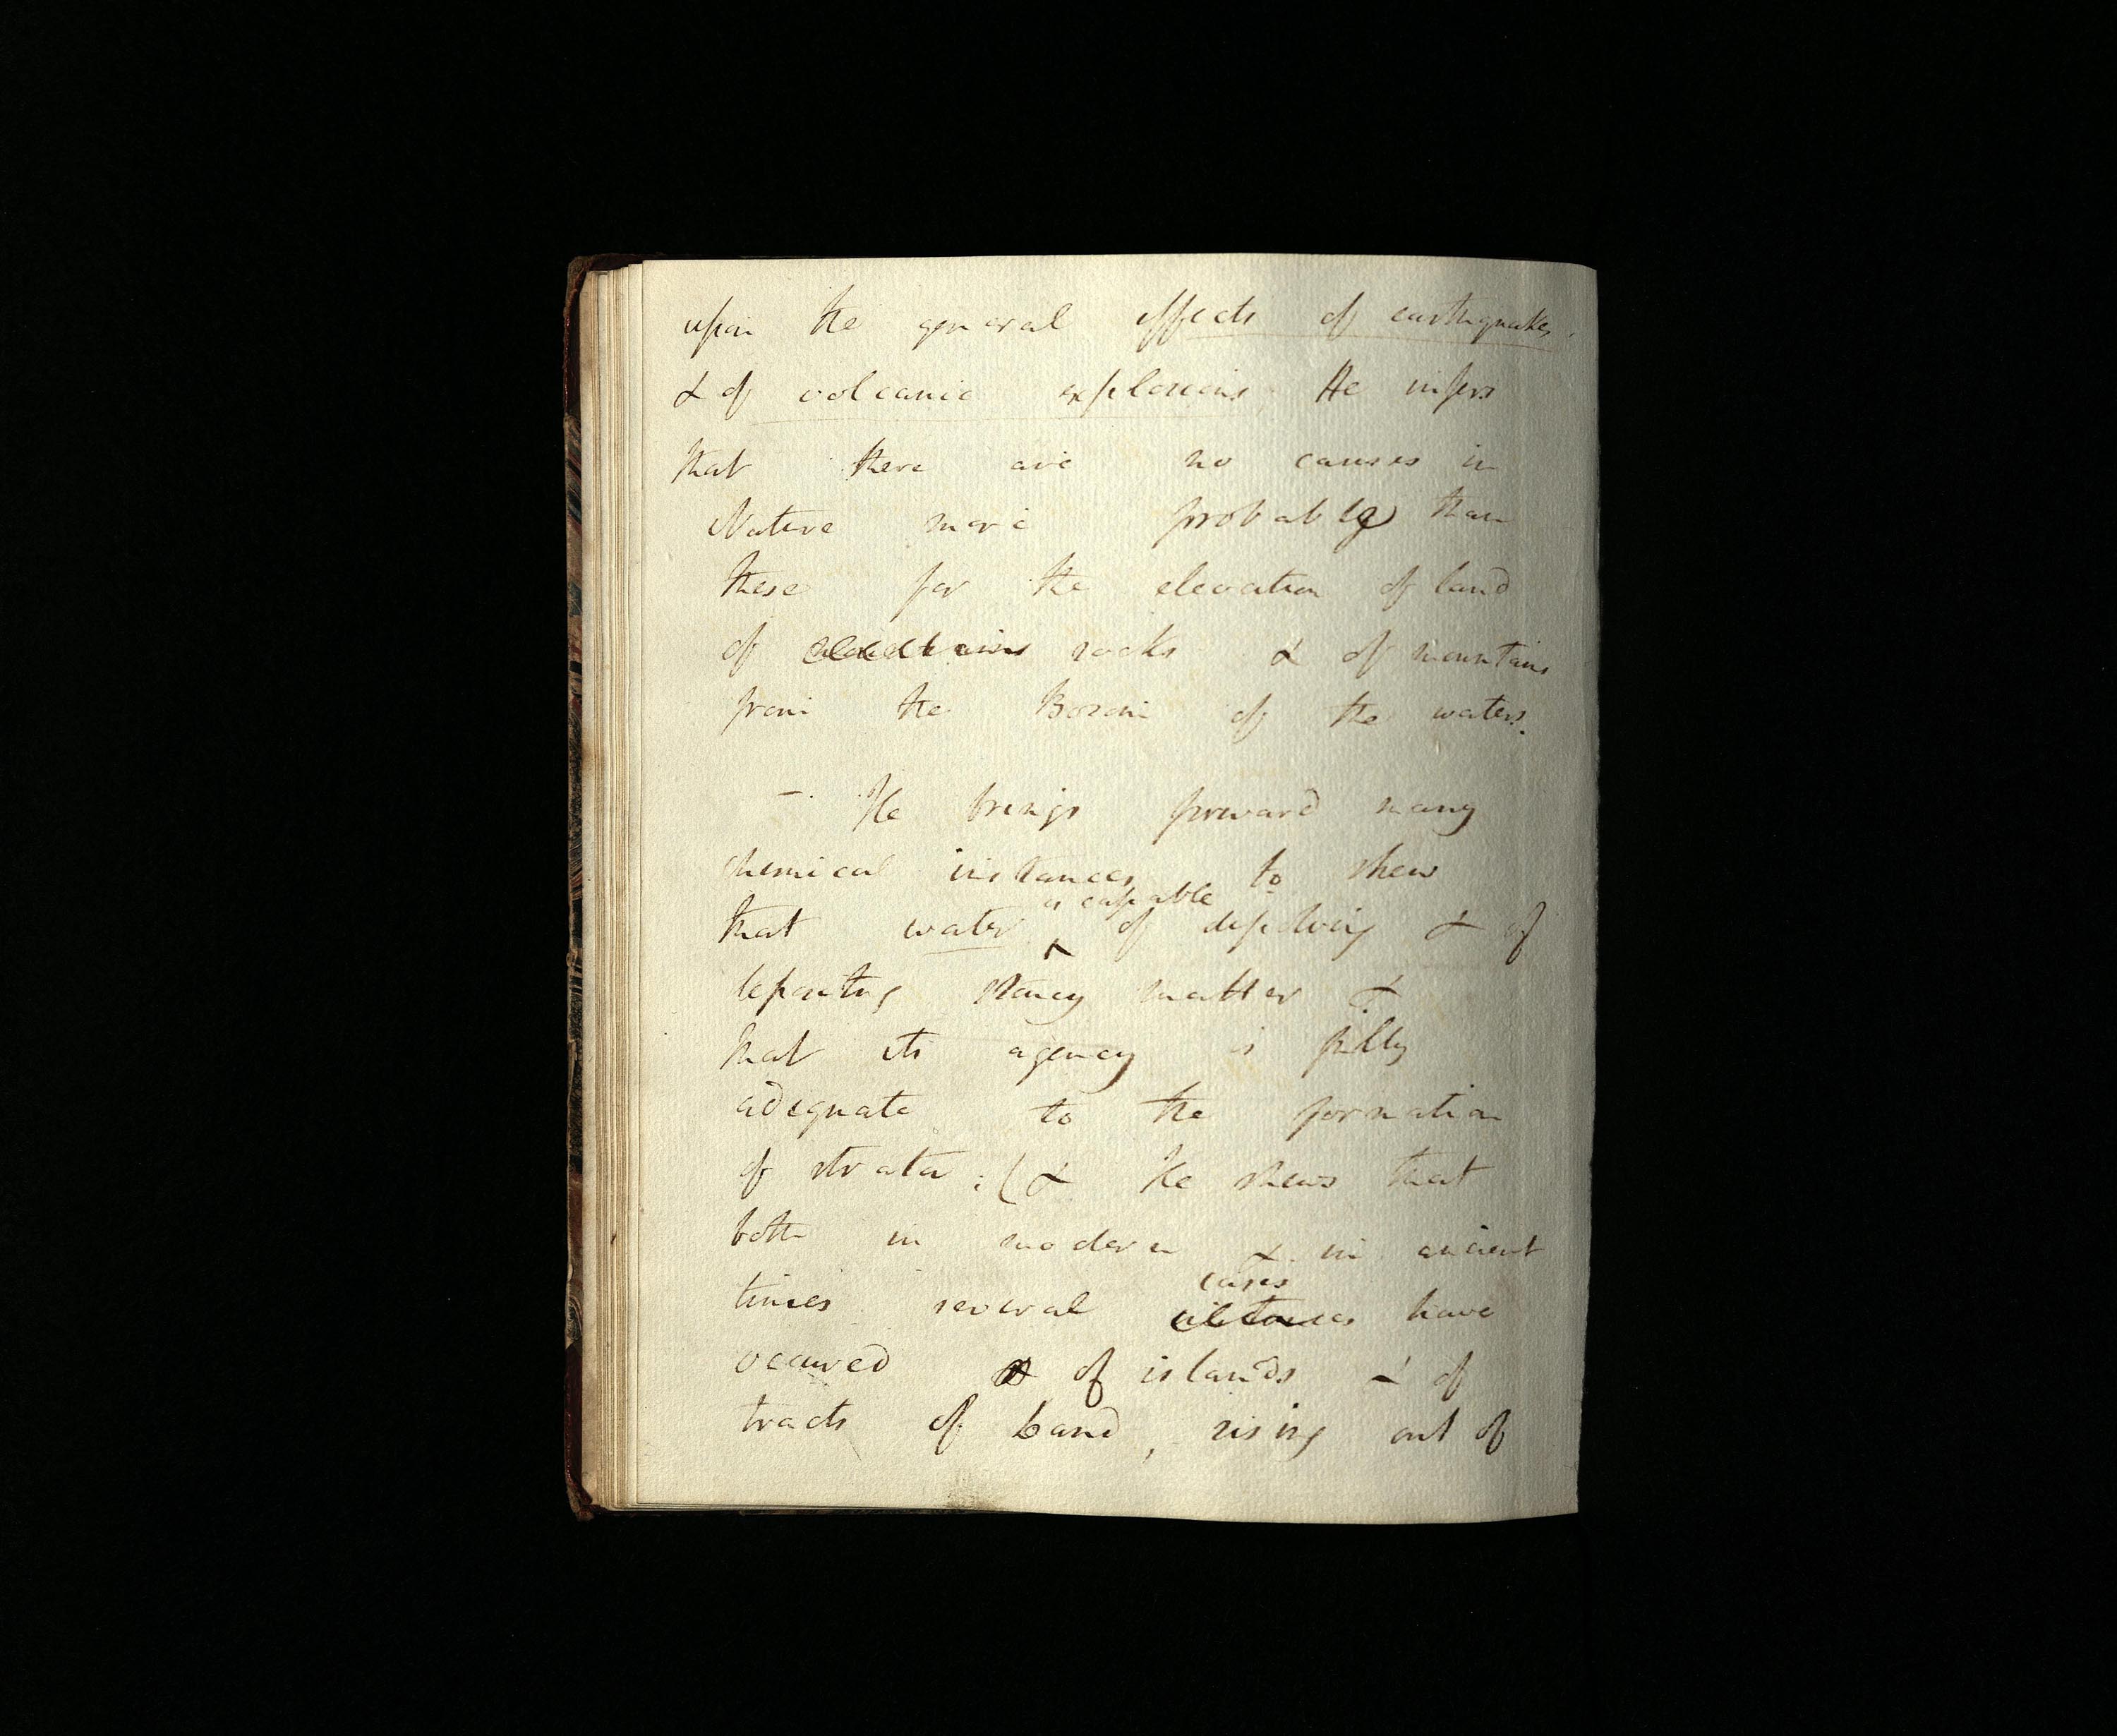 upon the general effects of earthquakes,
& of volcanic explosions. He infers
that there are no causes in
Nature more probable than
these for the elevation of land
of rocks & of mountains
from the Bosom of the waters.
– He brings forward many
chemical instances to shew
is capable
that water ^ of dissolving & of
depositing stoney matter &
that its agency is fully
adequate to the formation
of strata; (& He shews that
both in modern & in ancient
cases
times several instances have
occured of islands & of
tracts of Land, rising out of